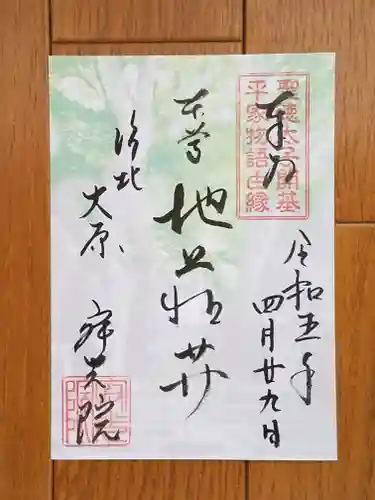 聖徳太子開基
平家物語由縁
奉拝
令和五年
四月廿九日
本尊
地
洛北
大原 寂光院